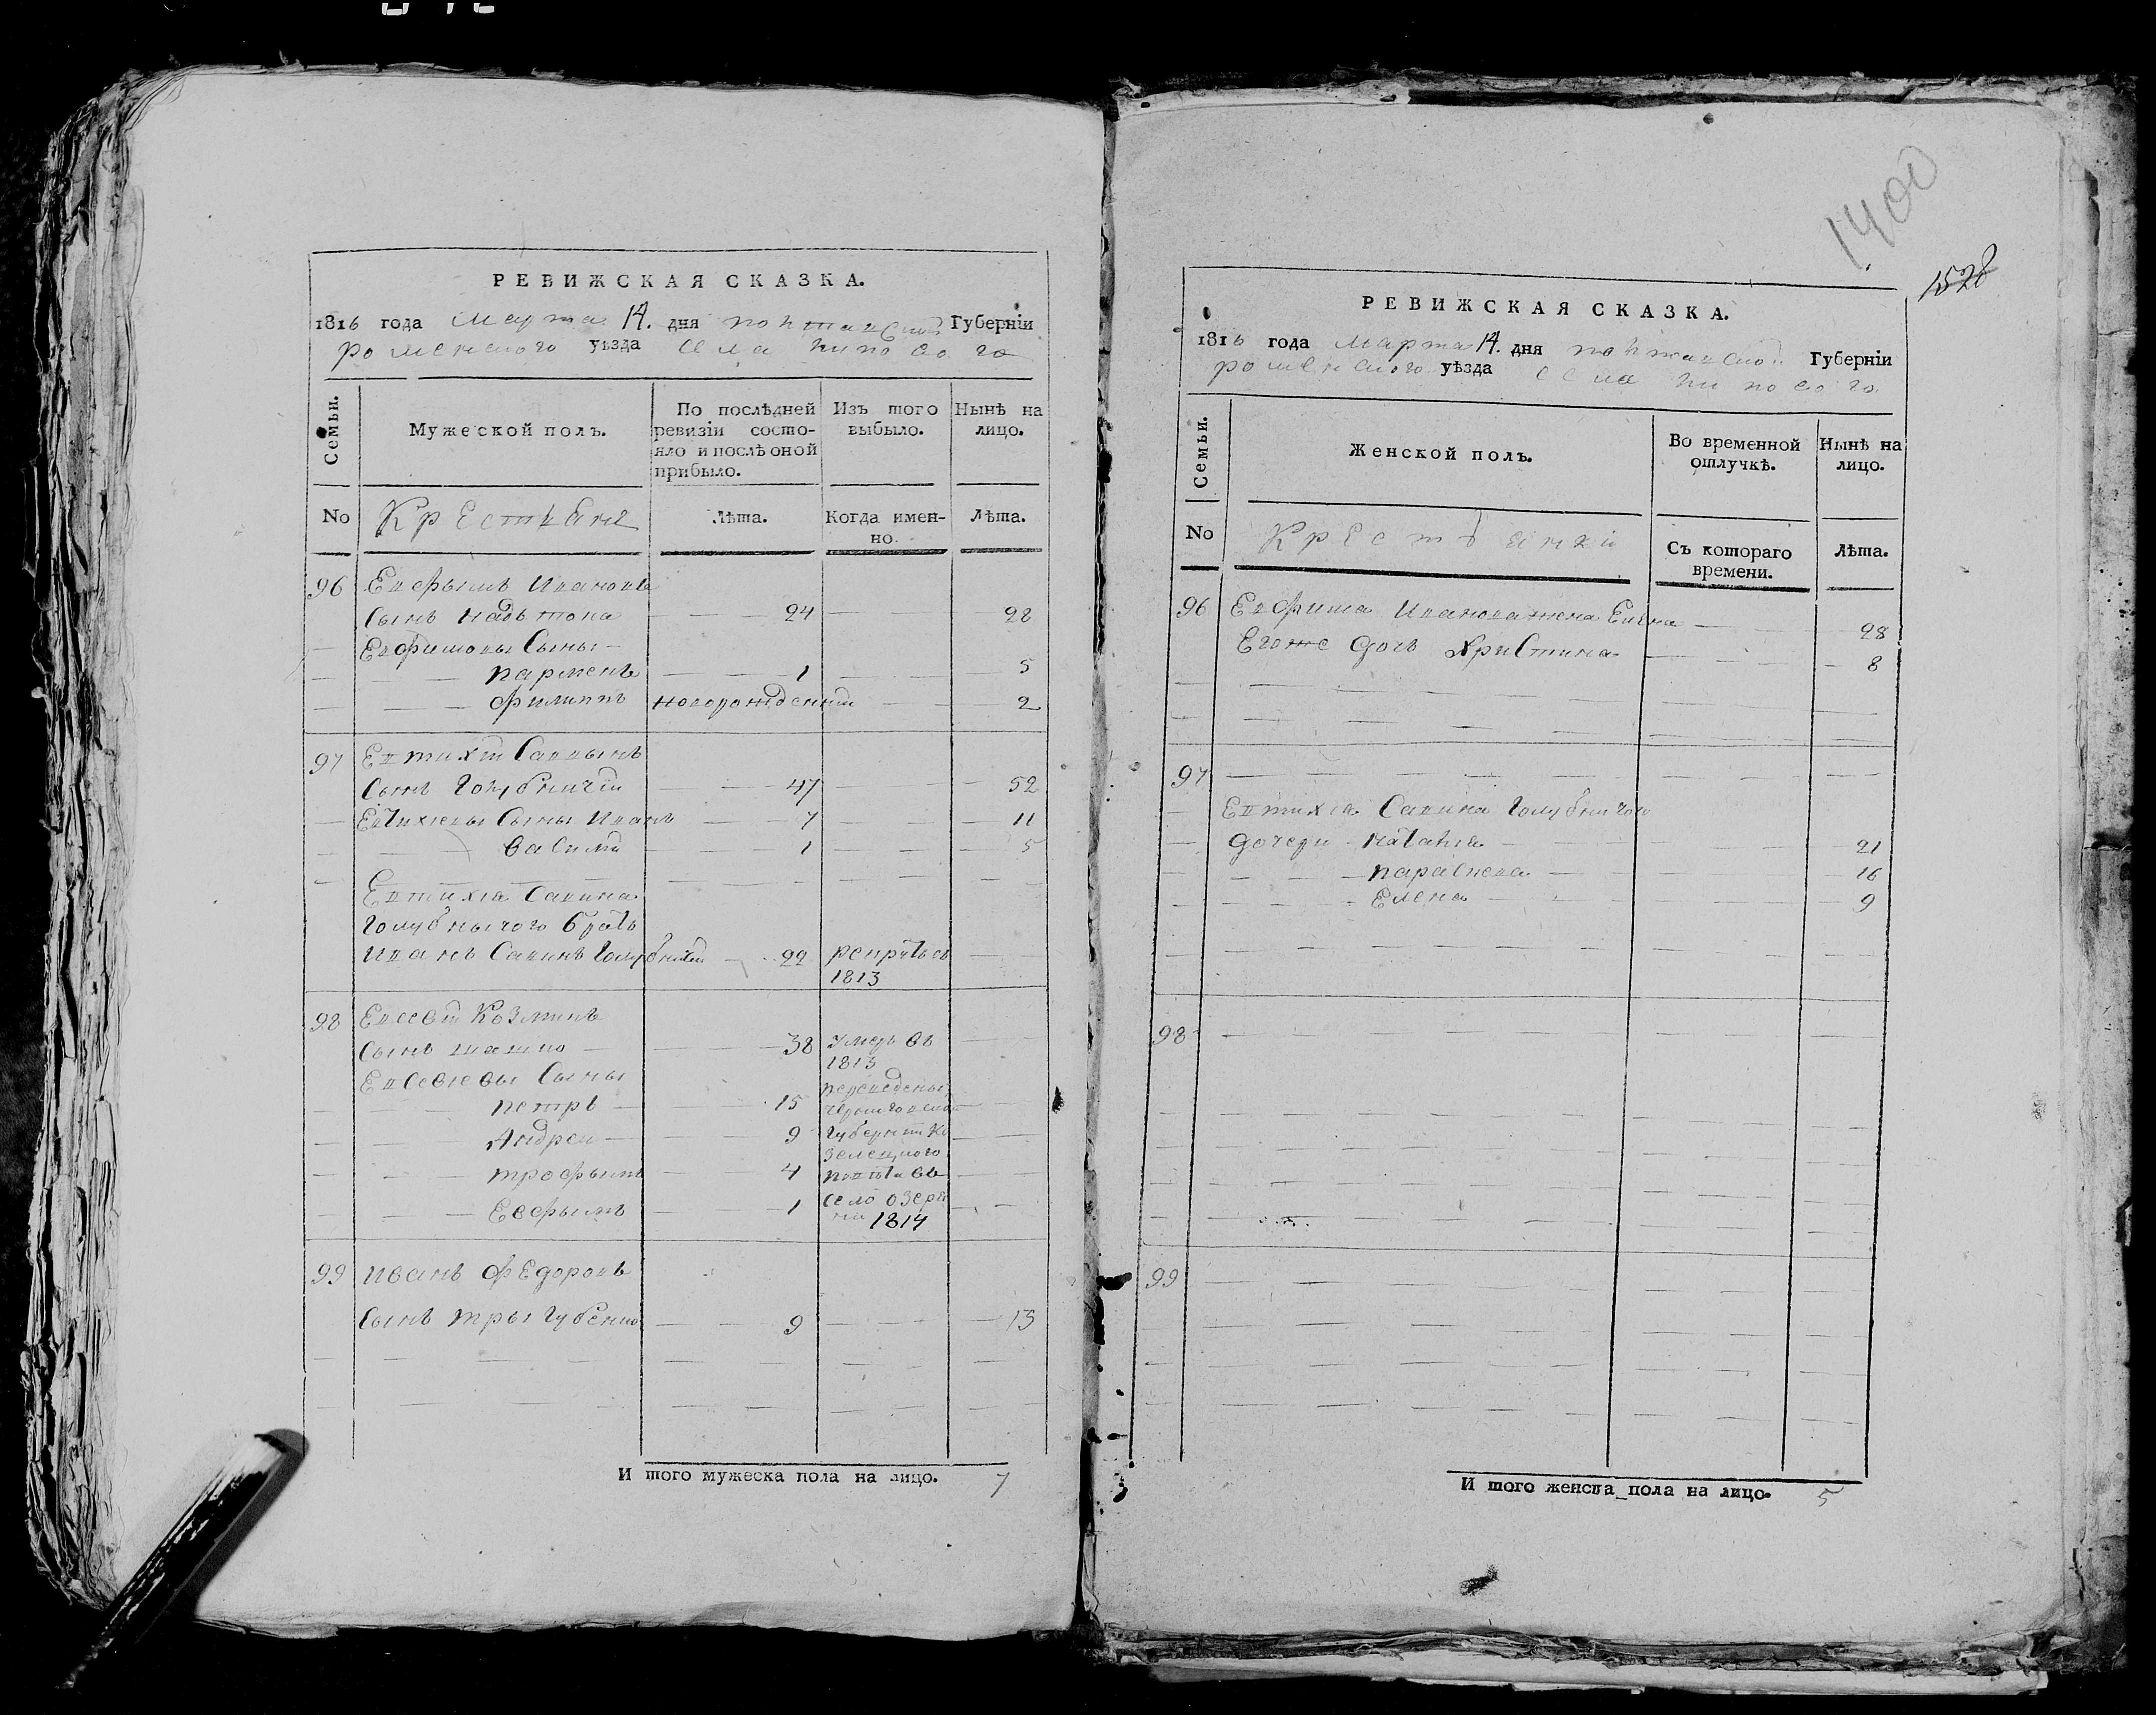 РЕВИЖСКАЯ СКАЗКА.
1816 года Марта 14. дня полтавской Губерніи
роменского уѣзда села
Семьи.
Мужеской полъ.
По послѣдней ревизіи состояло и послѣ оной прибыло.
Изъ того выбыло.
Нынѣ на лицо.
No Крестьяне Лѣта. Когда именно. Лѣта.
96 Евфымъ Ивановъ
сынъ 24 28
Евфимовы сыны
парменъ 1 5
филиппъ новорожденный 2
97 Евтихій Саввынъ
сынъ Голубничій 47 52
Евтихіевы сыны Иванъ 7 11
василій 1 5
Евтихія Савина
Голубнычого братъ
Иванъ Савинъ Голубничій 22 рекрутъ съ
1813
98 Евсевій Козминъ
сынъ 38 умеръ въ
1813
Евсевіевы сыны переведены
петръ 15 черниговской
Андрей 9 Губерніи Ко
зелецкого
трофымъ 4 повѣта въ
Евфымъ 1 село озеря
ни 1814
99 иванъ Федоровъ
сынъ трыгубенко 9 13
И того мужеска пола на лицо. 7
1400
1528
РЕВИЖСКАЯ СКАЗКА.
1816 года Марта 14. дня полтавской Губерніи
роменского уѣзда села
Семьи.
Женской полъ.
Во временной отлучкѣ.
Нынѣ на лицо.
No Крестьянки Съ котораго времени. Лѣта.
96 Евфима Иванова жена Елена 28
Егоже дочь Христина 8
97
Евтихія Савина Голубничого
дочери Наталія 21
параскева 16
Елена 9
98
99
И того женска пола на лицо. 5